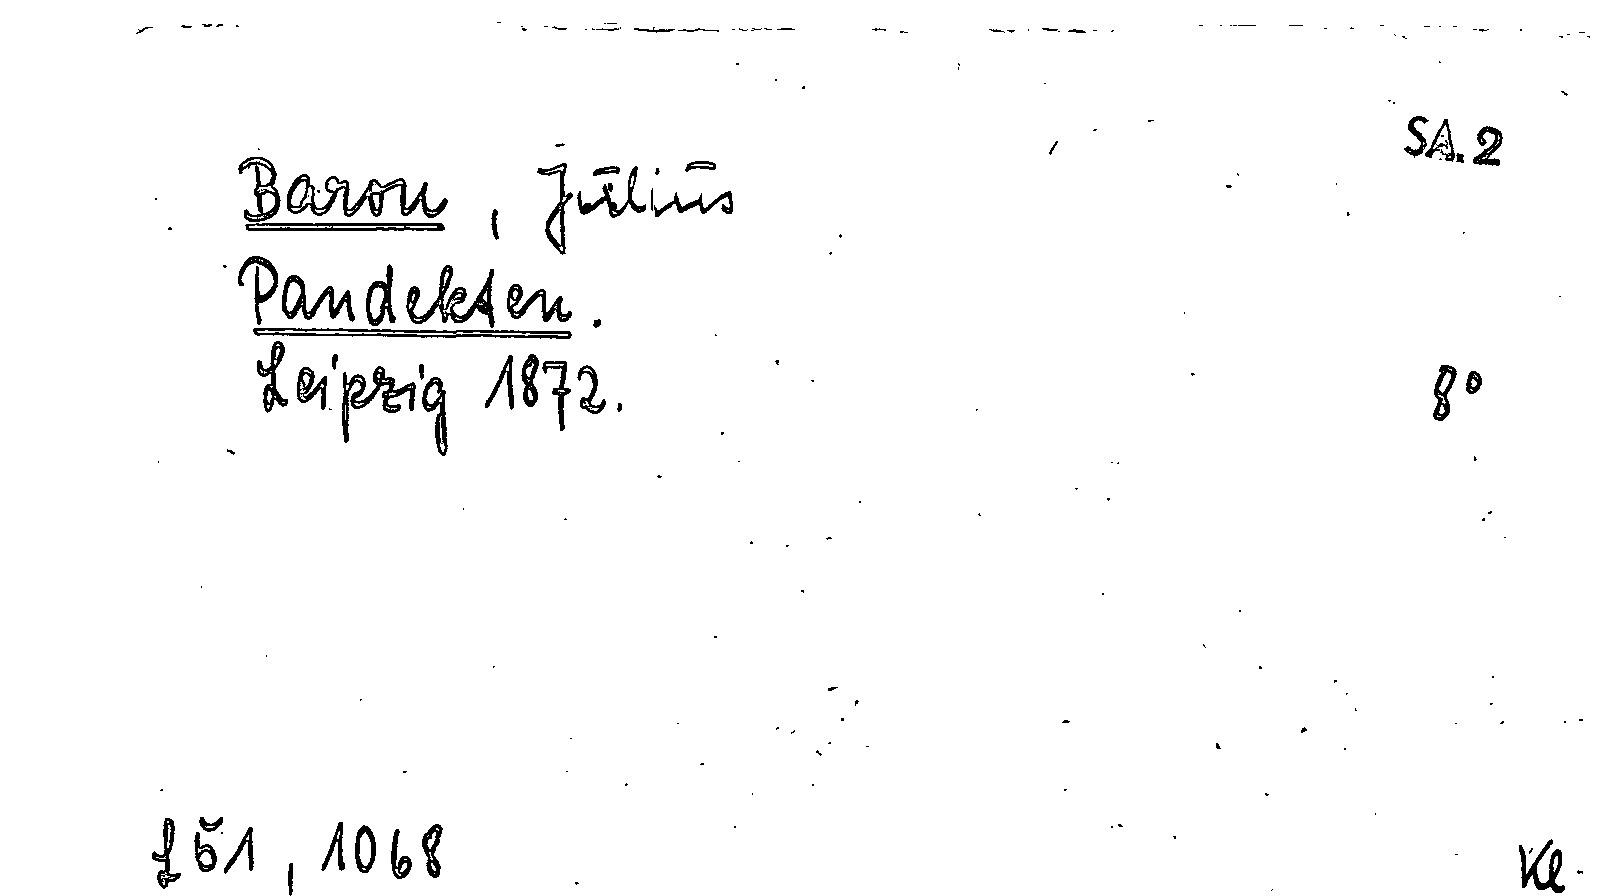 SA. 2
Baron, Julius
Pandekten.
Leipzig 1872.
8°
£51, 1068
Kl.